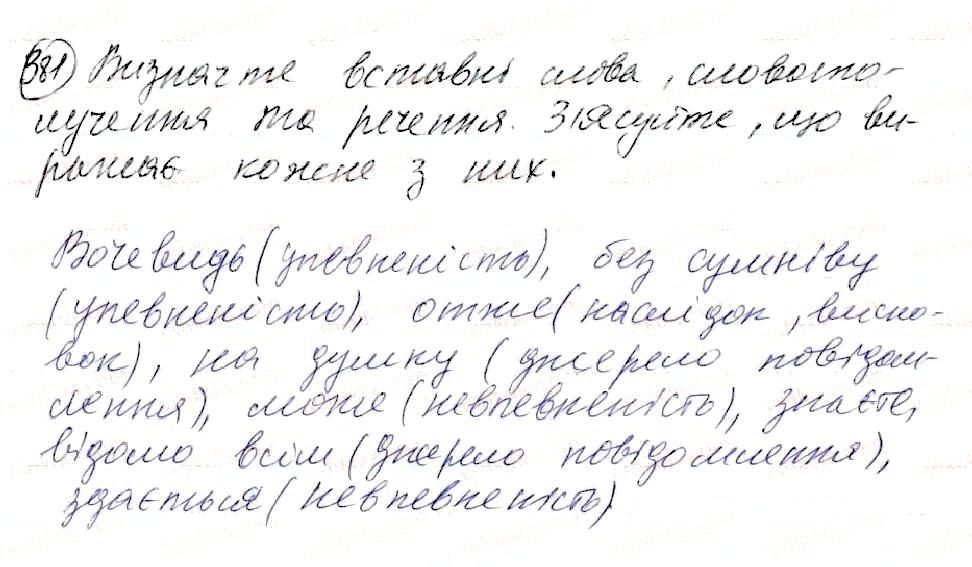 381 Визначте вставні слова, словоспо-
лучення та речення. З'ясуйте, що ви-
ражає кожне з них.
Вочевидь (упевненість), без сумніву
(упевненість), отже (наслідок, висно-
вок), на думку (джерело повідом-
лення), може (невпевненість), знаєте,
відомо всім (джерело повідомлення),
здається (невпевненість)